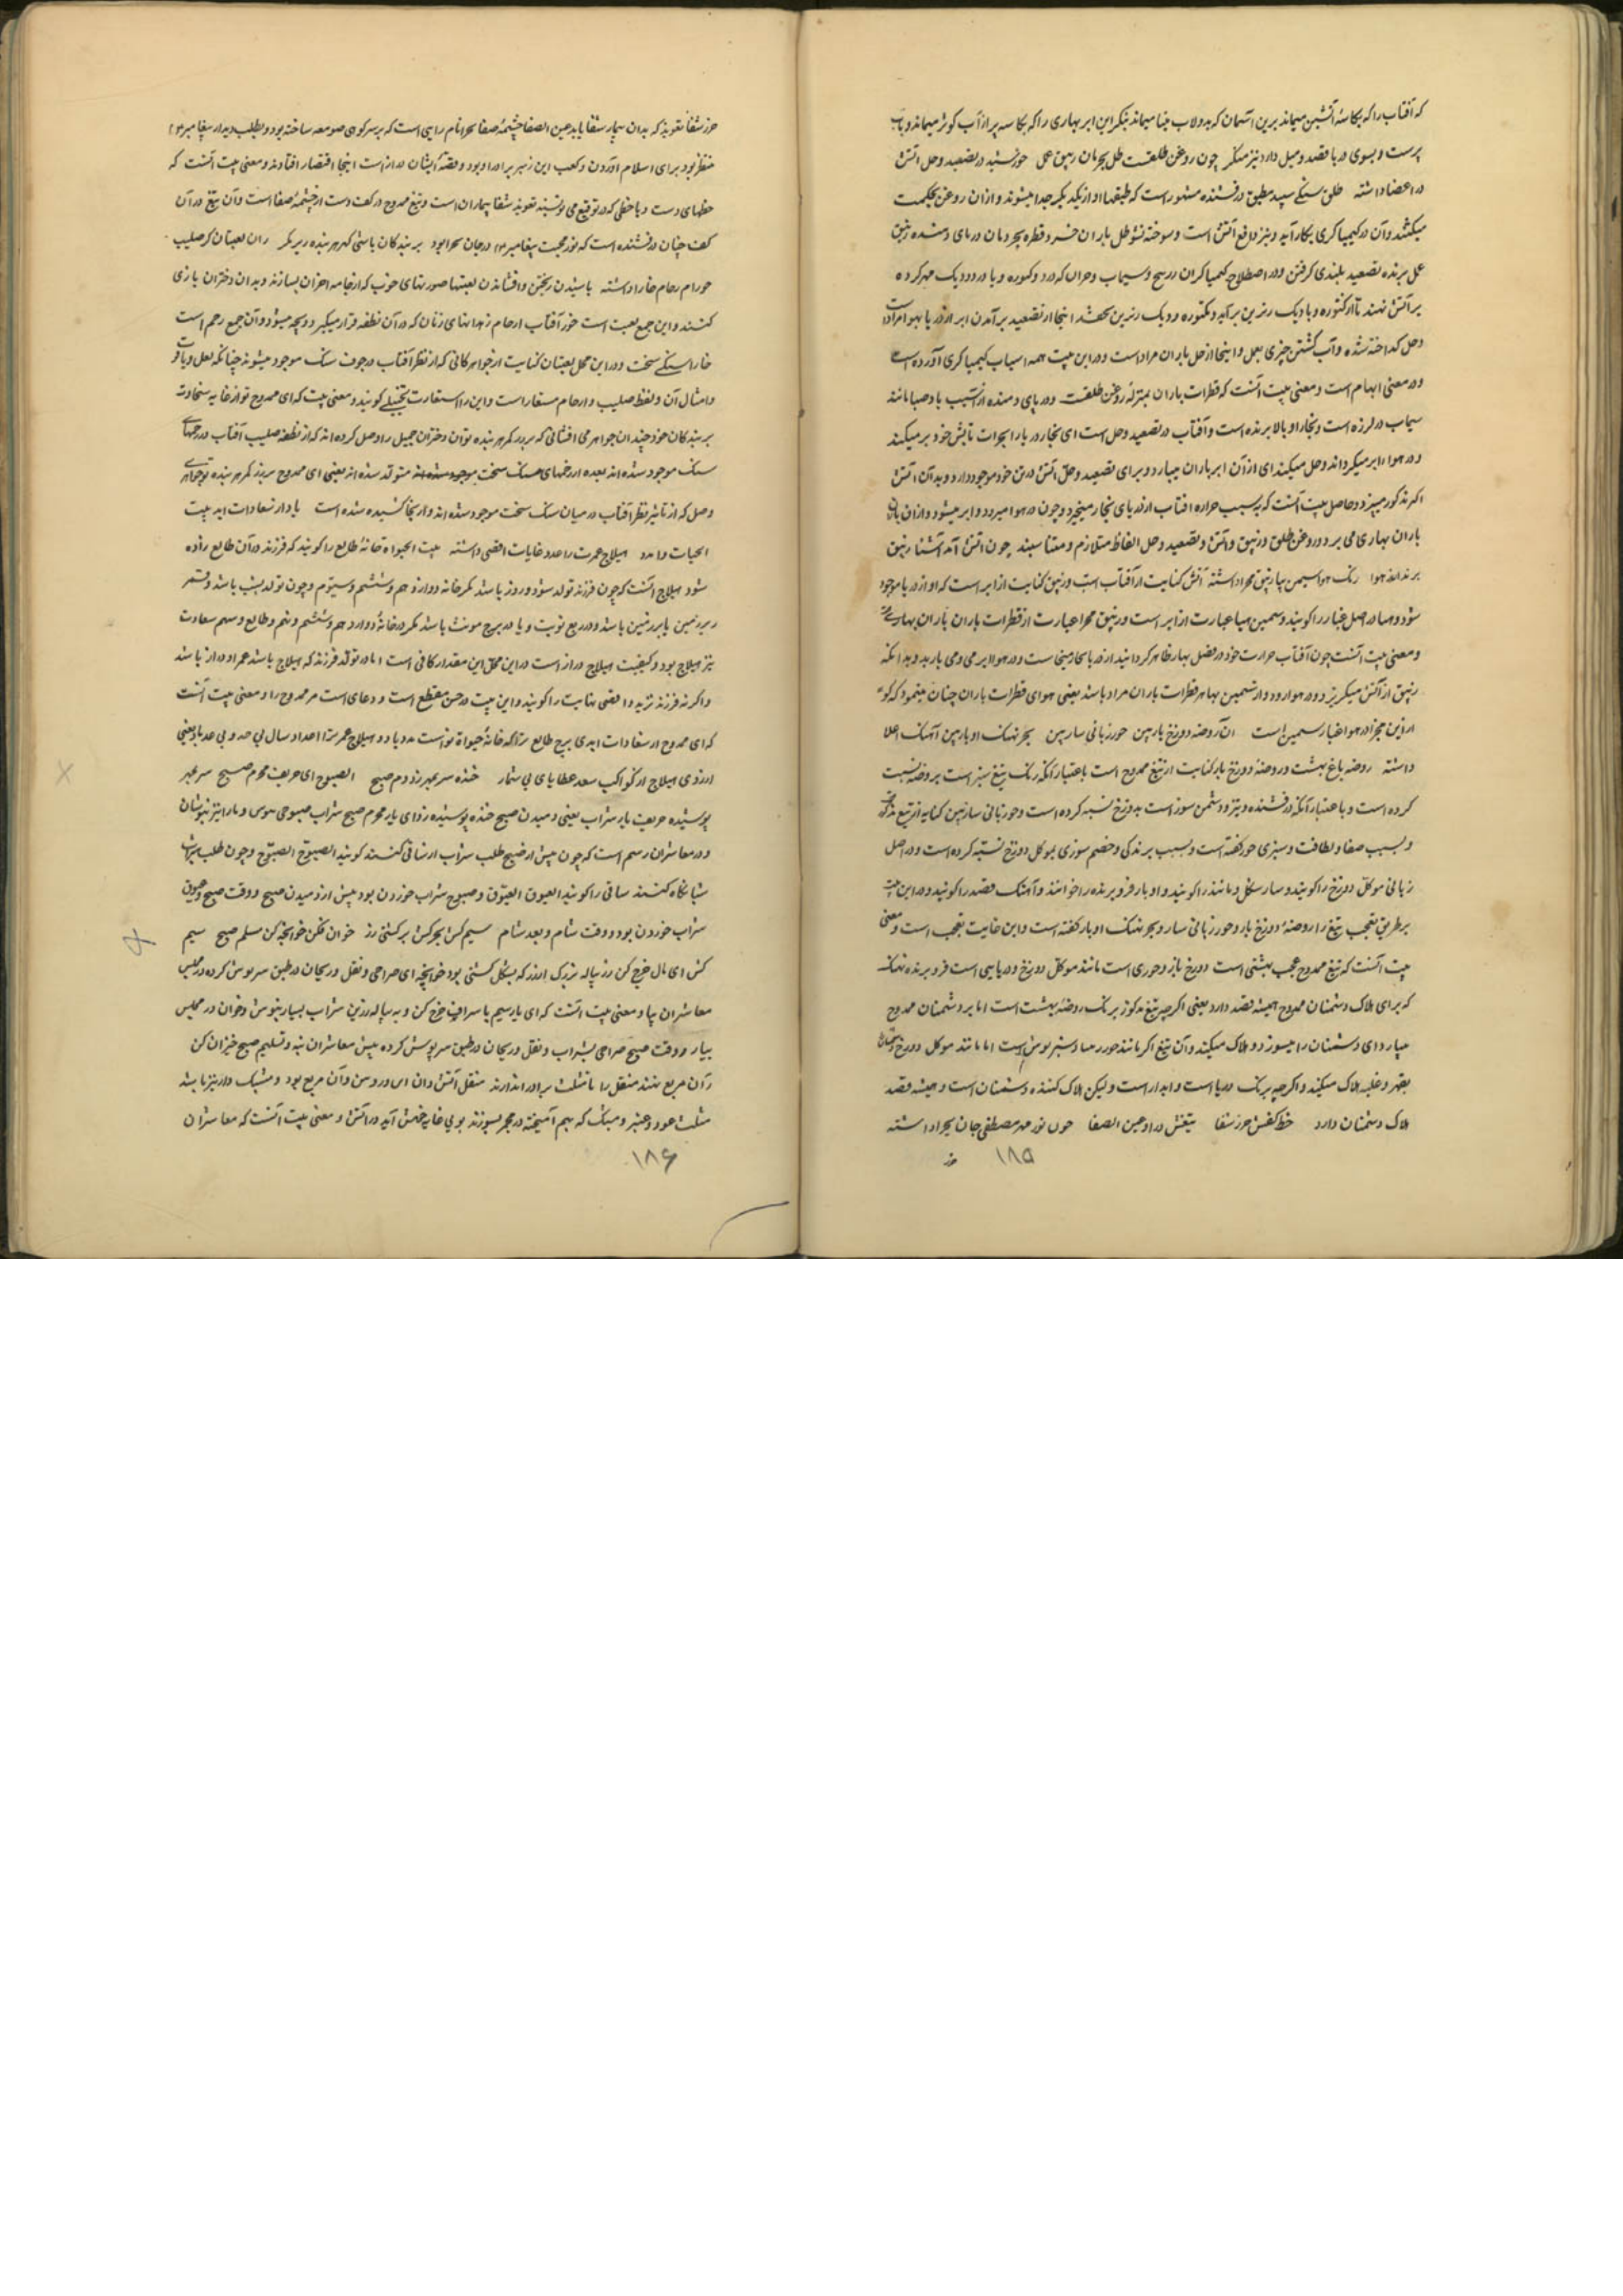 که آفتاب را که بکاسهٔ آتشین میماند برین آسمان که بدولاب مینا میماند بنگر این ابر بهاری را که بکاسه پر از آب کوزا میماند و
پرست و بسوی دریا قصد و میل دارد نیز منگر چون روغن طلقست طل بحر مان زیبق عمل خورشید در تصعید و حل آتش
در اعضا داشته طلق سنگی سپید مطبق درفشنده مشهور است که طبقها او از یکدیگر جدا میشوند و ازان روغن بحکمت
میکشند و آن در کیمیاگری بکار آید و نیز دافع آتش است و سوخته نشود طل باران خرد قطره بحر دمان دریای دمنده زیبق
عمل برنده تصعید بلندی گرفتن و در اصطلاح کیمیاگران زرنیخ و سیماب و جزان که در دو کتوره و یا در دو دیک مهر کرده
بر آتش نهند تا از کتوره و یا دیک زیرین برآید و بکتوره و دیک زبرین بچفسد اینجا از تصعید برآمدن ابر از دریا بهوا مراد است
و حل گداخته شده و آب گشتن چیزی بعمل و اینجا از حل باران مراد است و در این بیت همه اسباب کیمیاگری آورده است
و در معنی ابهام است و معنی بیت آنست که قطرات باران بمنزلهٔ روغن طلقست و دریای دمنده از آسیب باد صبا مانند
سیماب در لرزه است و بخار او بالا برنده است و آفتاب در تصعید و حل است ای بخار دریا را بحرارت تابش خود بر میکند
و در هوا را ابر میگرداند و حل میکند ای از آن ابر باران میبارد و برای تصعید و حل آتش در تن خود موجود دارد و بدان آتش
اگر مذکور میپزد و حاصل بیت آنست که بسبب حرارة آفتاب از دریای بخار میخیزد و چون در هوا میرود و ابر میشود و ازان
باران بهاری می برد و روغن طلق و زیبق و آتش و تصعید و حل الفاظ متلازم و متناسبند چون آتش آمد آشنا زیبق
برند اندر هوا رنگ هوا سیمین هبا زیبق محرا داشته آتش کنایت از آفتاب است و زیبق کنایت از ابر است که او از دریا موجود
شود و هبا در اصل غبار را گویند و سیمین هبا عبارت از ابر است و زیبق محرا عبارت از قطرات باران باران بهاری
و معنی بیت آنست چون آفتاب حرارت خود در فصل بهار ظاهر گردانید از دریا بخار میخاست و در هوا ابر می و می بارید و بدانکه
زیبق از آتش میگریزد و در هوا رود و از سیمین هبا هر قطرات باران مراد باشد یعنی هوای قطرات باران چنان مینمود که گو
از این مجرا در هوا غبار سیمین است آن روضه دوزخ بار بین حور زبانی سار بین بحر نهنگ اوبار بین آهنگ اعدا
داشته روضه باغ بهشت و روضهٔ دوزخ بار کنایت از تیغ ممدوح است باعتبار آنکه رنگ تیغ سبز است بروضه نسبت
کرده است و باعتبار آنکه درفشنده و تیز و دشمن سوز است بدوزخ نسبه کرده است و حور زبانی سار بین کنایه از تیغ مذکور
و بسبب صفا و لطافت و سبزی حور گفته است و بسبب برندگی و خصم سوزی بموکل دوزخ نسبته کرده است و در اصل
زبانی موکل دوزخ را گویند و سار سکل و مانند را گویند و اوبار فرو برنده را خوانند و آهنگ قصد را گویند و در این بیت
بر طریق تعجب تیغ را روضهٔ دوزخ بار و حور زبانی سار و بحر نهنگ اوبار گفته است و این غایت تعجب است و معنی
بیت آنست که تیغ ممدوح عجب بهشتی است دوزخ بار و حوری است مانند موکل دوزخ و دریایی است فرو برنده نهنگ
که برای هلاک دشمنان ممدوح همیشه قصد دارد یعنی اگرچه تیغ مذکور برنگ روضهٔ بهشت است اما بر دشمنان ممدوح
میبارد ای دشمنان را میسوزد و هلاک میکند و آن تیغ اگر مانند حور رعنا و سبز پوش است اما مانند موکل دوزخ دشمنان
بقهر و غلبه هلاک میکند و اگرچه برنگ دریا است و ابدار است و لیکن هلاک کننده دشمنان است و همیشه قصد
هلاک دشمنان دارد خط کفش حرز شفا تیغش در او عین الصفا چون نور مهر مصطفی جان بحیرا داشته
حرز
۱۸۵
حرز شفا تعویذ که بدان بیمار شفا یابد عین الصفا چشمهٔ صفا بحیرا نام راهبی است که بر سر کوهی صومعه ساخته بود و بطلب دیدار پیغامبر
منتظر بود برای اسلام آوردن و کعب ابن زهیر برادر او بود و قصهٔ ایشان دراز است اینجا اقتصار افتاد و معنی بیت آنست که
خطهای دست و یا خطی که در توقیع می نویسند تعویذ شفا بیماران است و تیغ ممدوح در کف دست از چشمهٔ صفا است و آن تیغ در آن
کف چنان درفشنده است که نور محبت پیغامبر در جان بحیرا بود بر بندکان پاشی گهر هر بنده زیر بکر زان لعبتان کز صلیب
خور ام رحام خارا داشته پاشیدن ریختن و افشاندن لعبتها صورتهای خوب که از جامه دختران بسازند و بدان دختران بازی
کنند و این جمع لعبت است خور آفتاب ارحام زهدانهای زنان که در آن نطفه قرار میگیرد و بچه میشود و آن جمع رحم است
خارا سنگی سخت و در این محل لعبتان کنایت از جواهر کانی که از نظر آفتاب در جوف سنگ موجود میشوند چنانکه لعل و یاقوت
و امثال آن و لفظ صلیب و ارحام مستعار است و این را استعارت تخییلی گویند و معنی بیت که ای ممدوح تو از غایت سخاوت
بر بندکان خود چندان جواهر می افشانی که بر در کمر هر بنده تو آن دختران جمیل را وصل کرده اند که از نطفه صلیب آفتاب در رحمهای
سنگ موجود شده اند بعده از رحمهای سنگ سخت موجود شده اند متولد شده اند یعنی ای ممدوح بر در کمر هر بنده تو جواهر
وصل که از تاثیر نظر آفتاب در میان سنگ سخت موجود شده اند و از بیجا کشیده شده است بادا ز سعادات ابد بیت
الحیات را مدد هیلاج عمرت را عدد غایات اقصی داشته بیت الحیواة خانهٔ طالع را گویند که فرزند در آن طالع زاده
شود هیلاج آنست که چون فرزند تولد شود و روز باشد مگر خانه دوازدهم و ششم و سیوم و چون تولد بشب باشد و قمر
زیر زمین یا بر زمین باشد و در ربع نوبت و یا در برج مونث باشد مگر در خانهٔ دوازدهم و ششم و نهم و طالع و سهم سعادت
نیز هیلاج بود و کیفیت هیلاج دراز است در این محل این مقدار کافی است اما در تولد فرزند که هیلاج باشد عمر او دراز باشد
و اگر نه فرزند نزید و اقصی نهایت را گویند و این بیت در حسن مقطع است و دعای است مر ممدوح را و معنی بیت آنست
که ای ممدوح از سعادات ابدی برج طالع ترا که خانهٔ حیواة تو است مدد باد و هیلاج عمر ترا اعداد سال بی حد و بی عد باد یعنی
ارزوی هیلاج از کواکب سعد عطایای بی شمار خنده سر بمهر زد دم صبح الصبوح ای حریف محرم صبح سر بمهر
پوشیده حریف یار شراب یعنی دمیدن صبح خنده پوشیده زد ای یار محرم صبح شراب صبوحی بنوش و ما را نیز بنوشان
و در معاشران رسم است که چون پیش از صبح طلب شراب از ساقی کنند گویند الصبوح الصبوح و چون طلب شراب
شبانگاه کنند ساقی را گویند الغبوق الغبوق و صبوح شراب خوردن بود پیش از دمیدن صبح و وقت صبح و غبوق
شراب خوردن بود و وقت شام و بعد شام سیم کش بحر کش بر کشتی زر خوان فکن خوانچه کن مسلم صبح سیم
کش ای مال خرج کن زر پیاله بزرگ از زر که بشکل کشتی بود خوانچه ای صراحی و نقل و ریحان در طبق سرپوش کرده در مجلس
معاشران بیار و معنی بیت آنست که ای یار سیم باسراف خرج کن و به پیاله زرین شراب بسیار بنوش و خوان در مجلس
بیار و وقت صبح صراحی شراب و نقل و ریحان در طبق سرپوش کرده پیش معاشران بنه و تسلیم صبح خیزان کن
زان مربع نهند منقل را تا مثلث بر او اندازند منقل آتش دان و آن مربع بود و مشبک دار نیز باشد
مثلث عود و عنبر و مشک که بهم آمیخته در مجمر بسوزند بوی غایه خوش آید در آتش و معنی بیت آنست که معاشران
۱۸۶